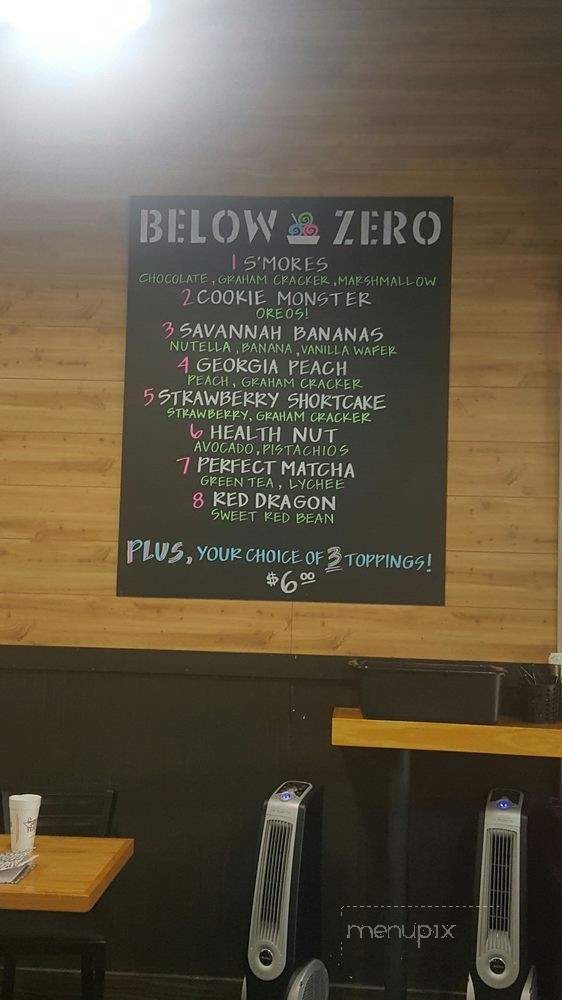 BELOW ZERO
1 S'MORES
CHOCOLATE, GRAHAM CRACKER, MARSHMALLOW
2 COOKIE MONSTER
OREOS!
3 SAVANNAH BANANAS
NUTELLA, BANANA, VANILLA WAFER
4 GEORGIA PEACH
PEACH, GRAHAM CRACKER
5 STRAWBERRY SHORTCAKE
STRAWBERRY, GRAHAM CRACKER
6 HEALTH NUT
AVOCADO, PISTACHIOS
7 PERFECT MATCHA
GREEN TEA, LYCHEE
8 RED DRAGON
SWEET RED BEAN
PLUS, YOUR CHOICE OF 3 TOPPINGS!
$6.00
menupix